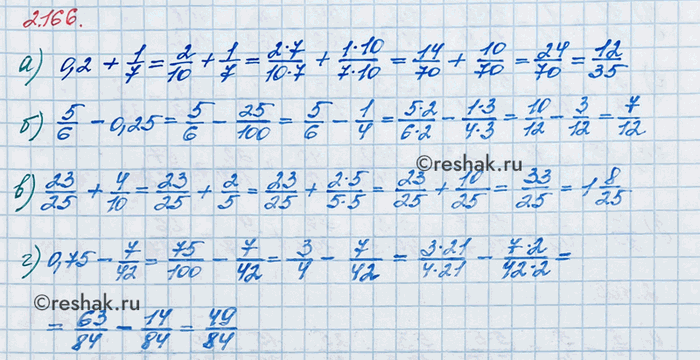 2.166.
а) 0,2 + 1/7 = 2/10 + 1/7 = 2·7/10·7 + 1·10/7·10 = 14/70 + 10/70 = 24/70 = 12/35
б) 5/6 − 0,25 = 5/6 − 25/100 = 5/6 − 1/4 = 5·2/6·2 − 1·3/4·3 = 10/12 − 3/12 = 7/12
©reshak.ru
в) 23/25 + 4/10 = 23/25 + 2/5 = 23/25 + 2·5/5·5 = 23/25 + 10/25 = 33/25 = 1 8/25
г) 0,75 − 7/42 = 75/100 − 7/42 = 3/4 − 7/42 = 3·21/4·21 − 7·2/42·2 =
©reshak.ru
= 63/84 − 14/84 = 49/84